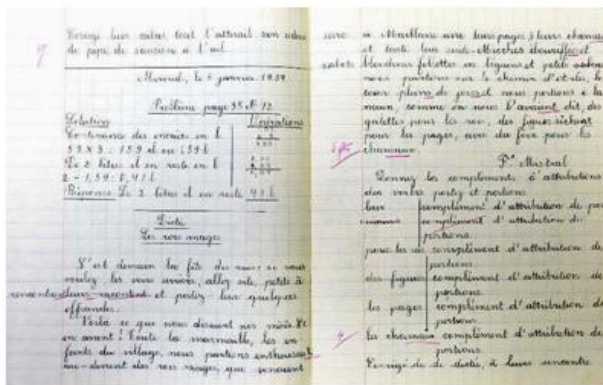 9
Corrigé leur sabot tout l'attirail son odeur
de pipe de saucisse à l'ail
Mercredi, le 5 janvier 1939
Problème page 35 N° 12
Solution Opérations
Contenance des encriers en l
53 X 3 = 159 et en 1,59 l
De 2 litres il en reste en l
2 - 1,59 = 0,41 l
Réponse De 2 litres il en reste 41 l
Dictée
Les rois mages
C'est demain la fête des rois si vous
voulez les voir arriver, allez vite, petits à
rencontre et portez leur quelques
offrandes.
Voilà ce que nous disaient nos mères Et
en avant! Toute la marmaille, les en
fants du village, nous partions enthousiastes
au-devant des rois mages, qui venaient
à Maillane avec leurs pages, leurs chameaux
et toute leur suite
sabots
blondins follettes en béguins et petits sabots
nous partions sur le chemin
et nous portions à la
main, comme on nous l'avaient dit, des
galettes pour les rois, des figues sèches
pour les pages, avec du foin pour les
chameaux.
F. Mistral
Donnez les compléments d'attributions
des verbes portez et portions
leur complément d'attribution de portez
complément d'attribution de
portions.
pour les rois complément d'attribution de
portions
des figues complément d'attribution de
portions.
les pages complément d'attribution de
portions.
4
les chameaux complément d'attribution de
portions.
Corrigé de dictée, à leurs rencontre